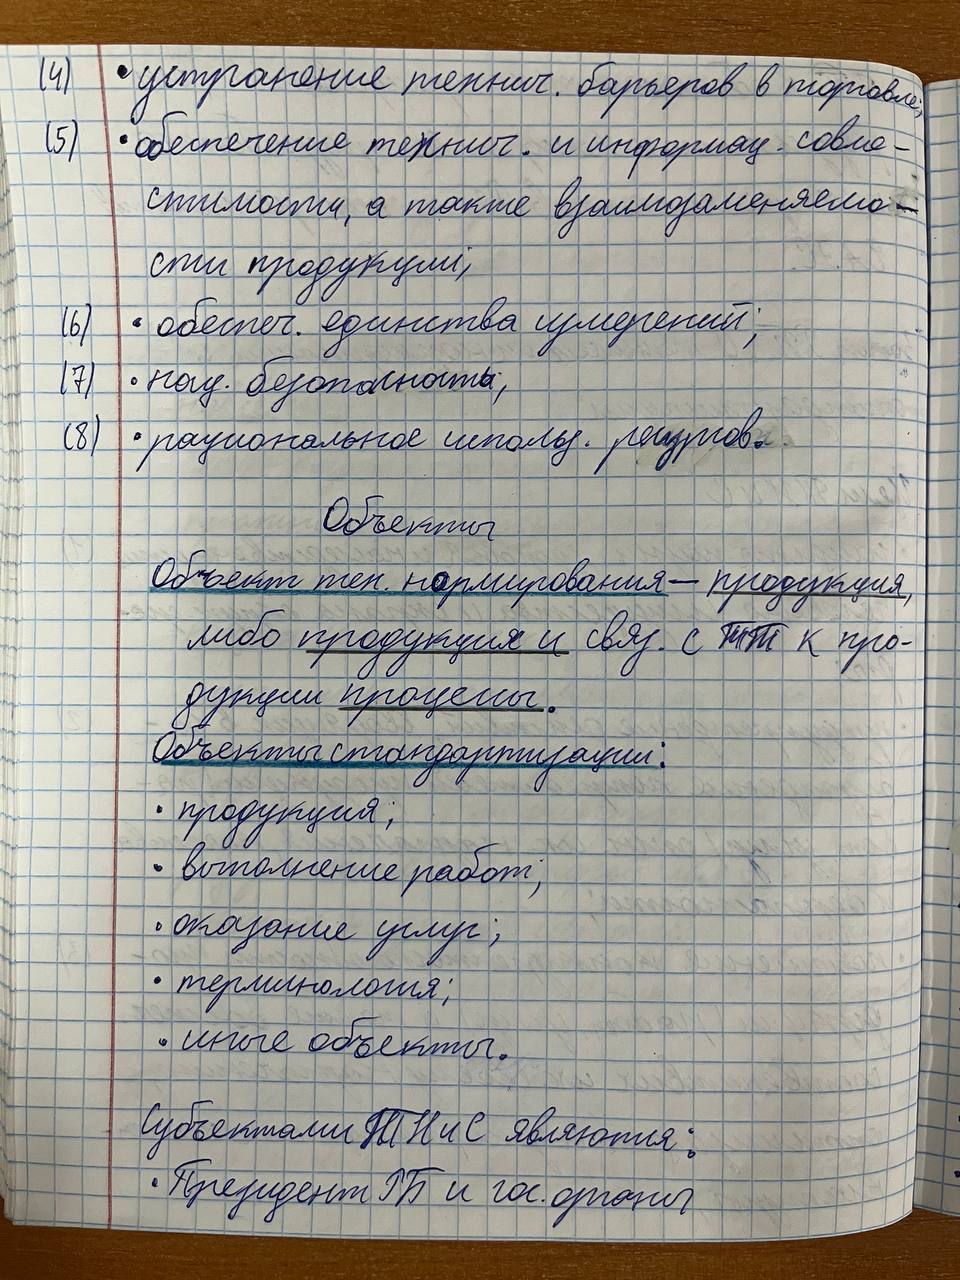 (4) • устранение технич. барьеров в торговле;
(5) • обеспечение технич. и информац. совме-
стимости, а также взаимозаменяемо-
сти продукции;
(6) • обеспеч. единства измерений;
(7) • нац. безопасность;
(8) • рациональное использ. ресурсов.
Объекты
Объект тех. нормирования — продукция,
либо продукция и связ. с ТТ к про-
дукции процессы.
Объекты стандартизации:
• продукция;
• выполнение работ;
• оказание услуг;
• терминология;
• иные объекты.
Субъектами ТНиС являются:
• Президент РБ и гос. органы